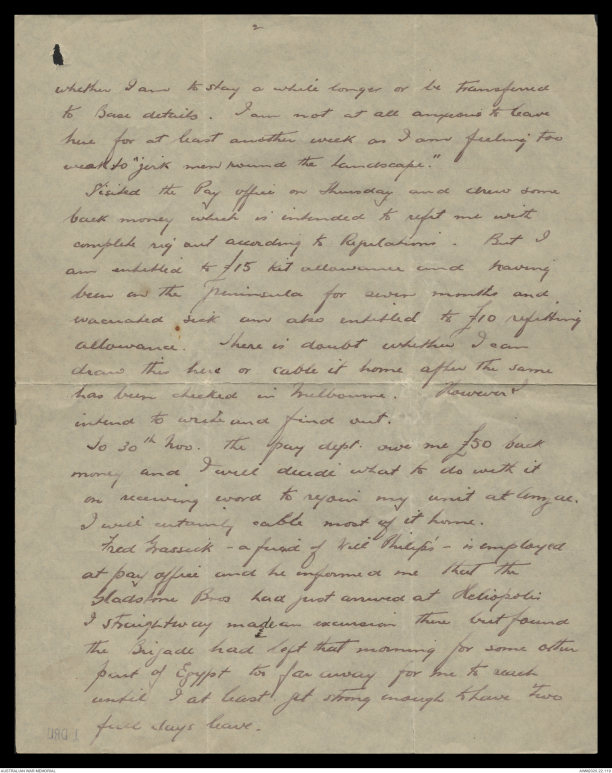 2
whether I am to stay a while longer or be transferred
to Base details. I am not at all anxious to leave
here for at least another week as I am feeling too
weak to "jerk men round the landscape."
Visited the Pay office on Thursday and drew some
back money which is intended to refit me with
complete rig out according to Regulations. But I
am entitled to £15 kit allowance and having
been on the Peninsula for seven months and
evacuated sick am also entitled to £10 refitting
allowance. There is doubt whether I can
draw this here or cable it home after the same
has been checked in Melbourne. However I
intend to write and find out.
To 30th Nov. the pay dept. owe me £50 back
money and I will decide what to do with it
on receiving word to rejoin my unit at Anzac.
I will certainly cable most of it home.
Fred Grassick - a friend of Will Philip's - is employed
at pay office and he informed me that the
Gladstone Bros had just arrived at Heliopolis
I straightway made an excursion there but found
the Brigade had left that morning for some other
part of Egypt too far away for me to reach
until I at least get strong enough to have two
full days leave.
1 DRL
AUSTRALIAN WAR MEMORIAL